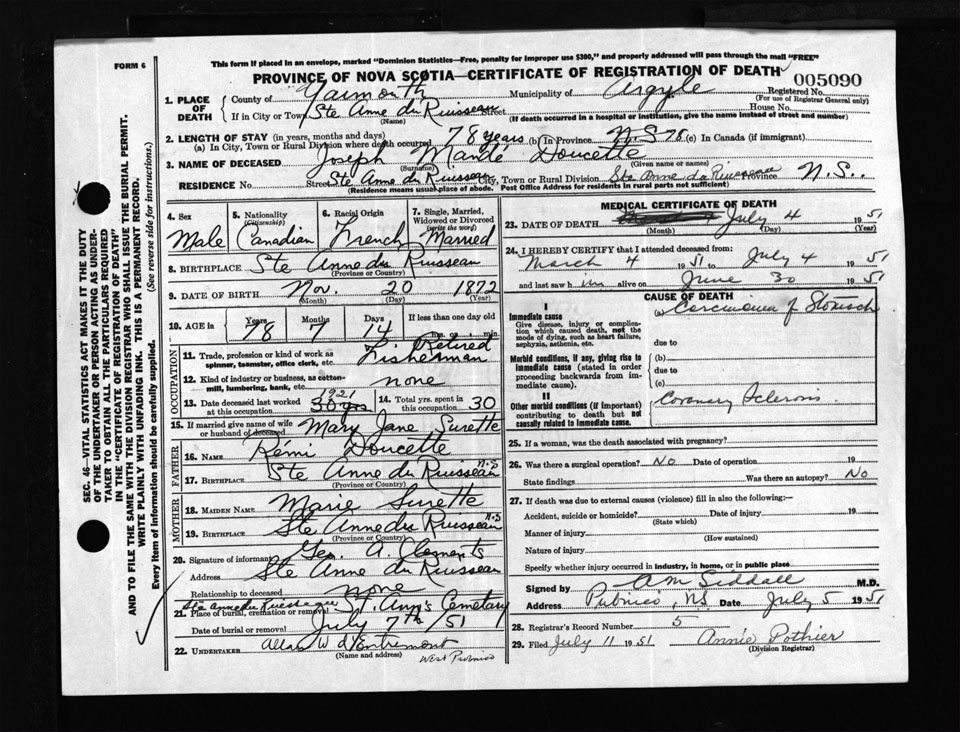 FORM 6
This form if placed in an envelope, marked "Dominion Statistics—Free, penalty for improper use $300," and properly addressed will pass through the mail "FREE"
PROVINCE OF NOVA SCOTIA—CERTIFICATE OF REGISTRATION OF DEATH
005090
Registered No.
(For use of Registrar General only)
1. PLACE OF DEATH
County of Yarmouth Municipality of Argyle
If in City or Town Ste Anne du Ruisseau Street House No.
(Name) (If death occurred in a hospital or institution, give the name instead of street and number)
2. LENGTH OF STAY (in years, months and days)
(a) In City, Town or Rural Division where death occurred 78 years (b) In Province N.S 78 (c) In Canada (if immigrant)
3. NAME OF DECEASED Joseph Mandé Doucette
(Surname) (Given name or names)
RESIDENCE No. Street Ste Anne du Ruisseau City, Town or Rural Division Ste Anne du Ruisseau Province N.S..
(Residence means usual place of abode. Post Office Address for residents in rural parts not sufficient)
4. Sex
Male
5. Nationality
(Citizenship)
Canadian
6. Racial Origin
French
7. Single, Married, Widowed or Divorced
(write the word)
Married
8. BIRTHPLACE Ste Anne du Ruisseau
(Province or Country)
9. DATE OF BIRTH Nov. 20 1872
(Month) (Day) (Year)
10. AGE in Years Months Days If less than one day old
78 7 14 hrs. or min.
OCCUPATION
11. Trade, profession or kind of work as spinner, teamster, office clerk, etc. Retired Fisherman
12. Kind of industry or business, as cotton-mill, lumbering, bank, etc. none
13. Date deceased last worked at this occupation 1921 30 yrs
14. Total yrs. spent in this occupation 30
15. If married give name of wife or husband of deceased Mary Jane Surette
FATHER
16. Name Rémi Doucette
17. Birthplace Ste Anne du Ruisseau N.S
(Province or Country)
MOTHER
18. Maiden Name Marie Surette
19. Birthplace Ste Anne du Ruisseau N.S
(Province or Country)
20. Signature of informant Geo. A. Clements
Address Ste Anne du Ruisseau
Relationship to deceased none
Ste Anne du Ruisseau
21. Place of burial, cremation or removal St. Ann's Cemetary
Date of burial or removal July 7th/51
22. UNDERTAKER Allan W d'Entremont
(Name and address) West Pubnico
MEDICAL CERTIFICATE OF DEATH
23. DATE OF DEATH July 4 1951
(Month) (Day) (Year)
24. I HEREBY CERTIFY that I attended deceased from:
March 4 1951 to July 4 1951
and last saw him alive on June 30 1951
CAUSE OF DEATH
I
Immediate cause
Give disease, injury or complication which caused death, not the mode of dying, such as heart failure, asphyxia, asthenia, etc.
(a) Carcinoma of Stomach
due to
Morbid conditions, if any, giving rise to immediate cause (stated in order proceeding backwards from immediate cause).
(b)
due to
(c)
II
Other morbid conditions (if important) contributing to death but not causally related to immediate cause.
Coronary Sclerosis
25. If a woman, was the death associated with pregnancy?
26. Was there a surgical operation? No Date of operation 19
State findings Was there an autopsy? No
27. If death was due to external causes (violence) fill in also the following:—
Accident, suicide or homicide? Date of injury 19
(State which)
Manner of injury
(How sustained)
Nature of injury
Specify whether injury occurred in industry, in home, or in public place
Signed by AM Siddall M.D.
Address Pubnico, N.S Date July 5 1951
28. Registrar's Record Number 5
29. Filed July 11 1951 Annie Pothier
(Division Registrar)
SEC. 46—VITAL STATISTICS ACT MAKES IT THE DUTY OF THE UNDERTAKER OR PERSON ACTING AS UNDERTAKER TO OBTAIN ALL THE PARTICULARS REQUIRED IN THE "CERTIFICATE OF REGISTRATION OF DEATH" AND TO FILE THE SAME WITH THE DIVISION REGISTRAR WHO SHALL ISSUE THE BURIAL PERMIT.
WRITE PLAINLY WITH UNFADING INK. THIS IS A PERMANENT RECORD.
Every item of information should be carefully supplied. (See reverse side for instructions.)